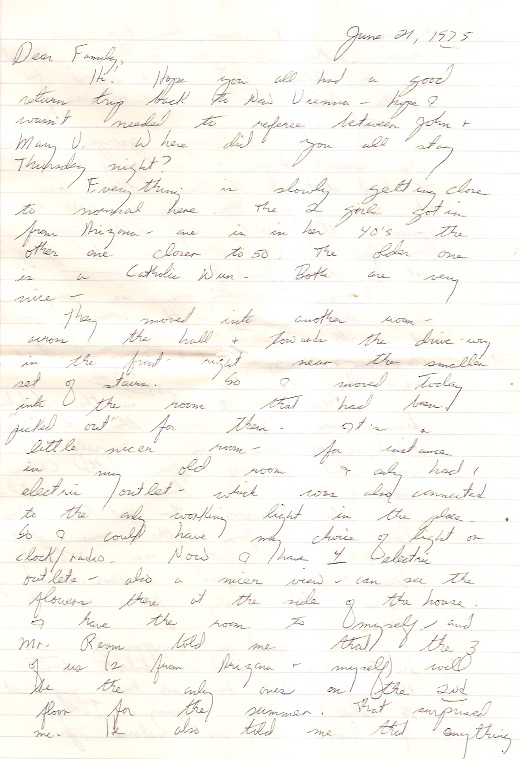 June 21, 1975
Dear Family,
Hi. Hope you all had a good
return trip back to New Vienna - hope I
wasn't needed to referee between John +
Mary V. Where did you all stay
Thursday night?
Everything is slowly getting close
to normal here. The 2 girls got in
from Arizona - one is in her 40's - the
other one closer to 50. The older one
is a Catholic Nun - Both are very
nice -
They moved into another room -
across the hall + towards the drive-way
in the front - right near the smaller
set of stairs. So I moved today
into the room that had been
"picked out" for them - It's a
little nicer room - for instance
in my old room I only had 1
electric outlet - which was also connected
to the only working light in the place.
So I could have my choice of light or
clock/radio. Now I have 4 electric
outlets - also a nicer view - can see the
flowers there at the side of the house.
I have the room to myself, and
Mr. Ream told me that the 3
of us (2 from Arizona + myself) will
be the only ones on the 2nd
floor for the summer. That surprised
me. He also told me that anything